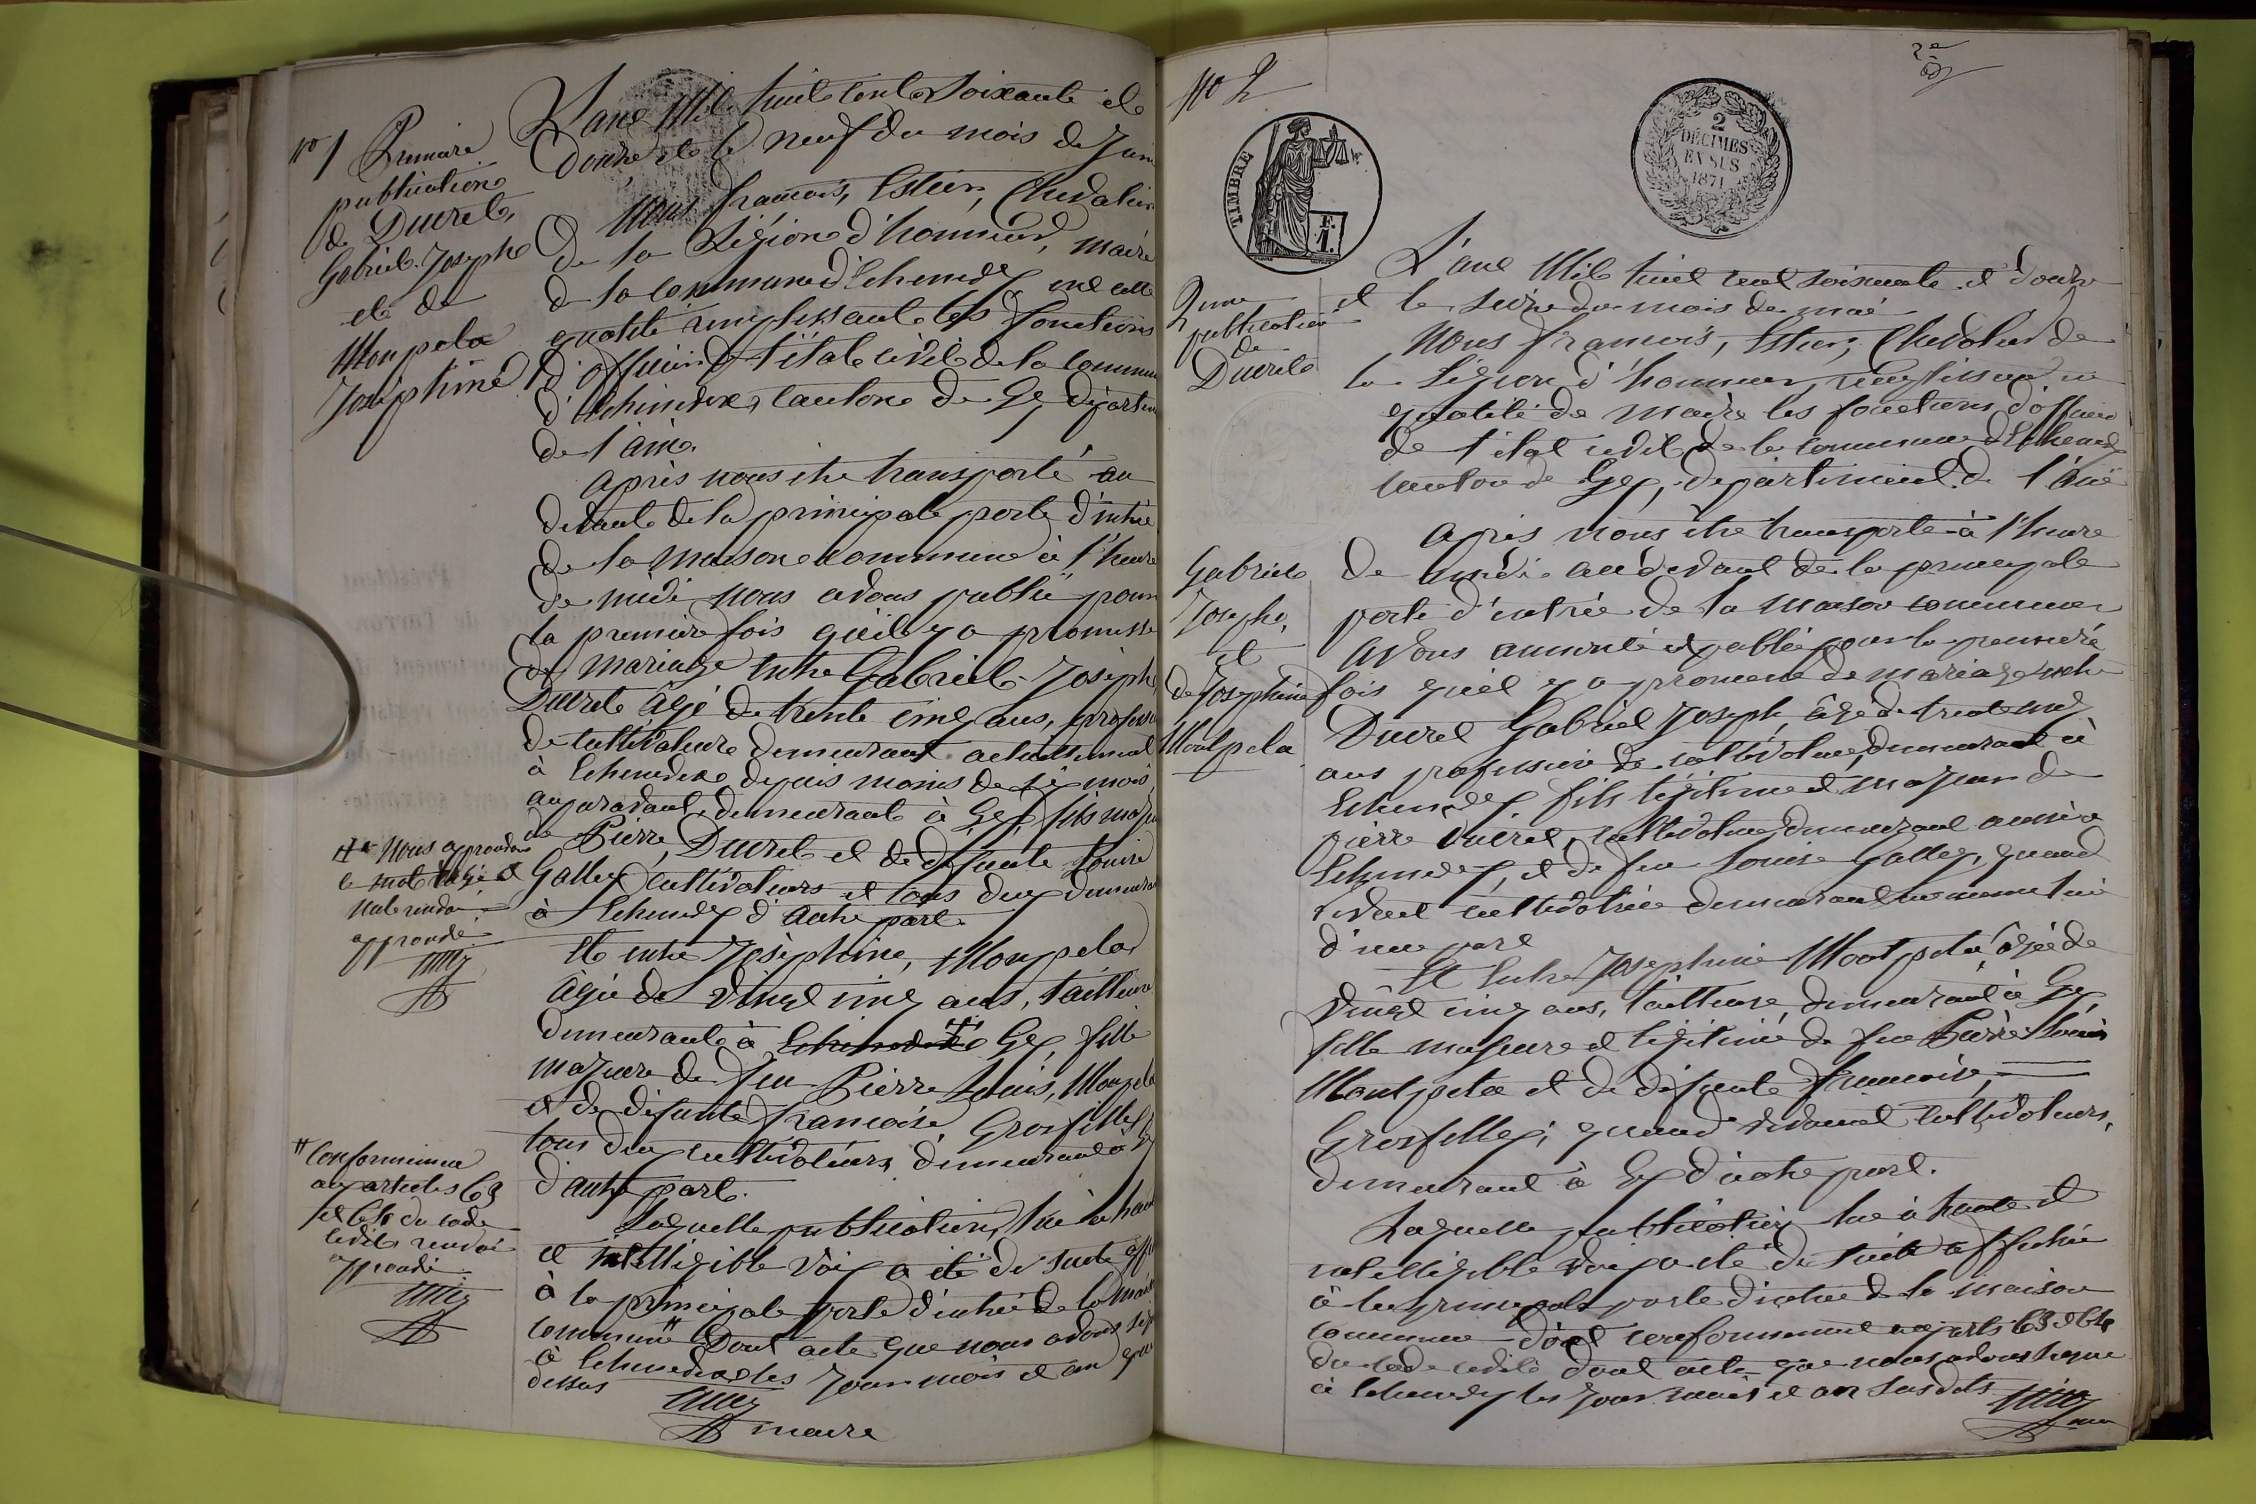 N° 1 Première
publication
de Ducret,
Gabriel Joseph
et de
Monpela
Joséphine
L'an Mil huit cent soixante et
Douze et le neuf du mois de Juin
Nous françois, Estier, Chevalier
de la Légion d'honneur, maire
de la commune d'Echenevex en cette
qualité remplissant les fonctions
d'officier de l'état civil de la commune
d'Echenevex, canton de Gex départem
de l'ain.
Après nous être transporté au
devant de la principale porte d'entrée
de la maison commune à l'heure
de midi nous avons publié pour
la première fois qu'il y a promesse
de mariage entre Gabriel Joseph
Ducret âgé de trente cinq ans, profession
de cultivateur demeurant actuellement
à Echenevex depuis moins de six mois
auparavant demeurant à Gex, fils majeur
de Pierre, Ducret et de défunte Louise
Galley cultivateurs et tous deux demeurant
à Echenevex d'autre part.
Et entre Joséphine, Monpela
âgée de vingt cinq ans, tailleuse
demeurant à Echenevex Gex, fille
majeure de feu Pierre Louis, Monpela
et de défunte françoise Grosfilley
tous deux cultivateurs demeurant à
d'autre part.
Laquelle publication, lue à haute
et intelligible voix a été de suite
à la principale porte d'entrée de la maison
commune # Dont acte que nous avons
à Echenevex les jour mois et an que
dessus
maire
# Nous approuvons
le mot rayé et
nul renvoi
approuvé
# Conformément
aux articles 63
et 64 du code
civil renvoi
approuvé
N° 2
TIMBRE
F.
1.
2
DÉCIMES
EN SUS
1871
publication
de
Ducret
Gabriel
Joseph,
et
de Joséphine
Montpela
L'an Mil huit cent soixante et douze
et le seize du mois de
Nous françois, Estier, Chevalier de
la Légion d'honneur, remplissant en
qualité de maire les fonctions d'officier
de l'état civil de la commune d'Echenevex
canton de Gex, département de l'Ain
Après nous être transporté à l'heure
de midi au devant de la principale
porte d'entrée de la maison commune
avons annoncé et publié pour la première
fois qu'il y a promesse de mariage entre
Ducret Gabriel Joseph, âgé de trente cinq
ans profession de cultivateur, demeurant à
Echenevex, fils légitime et majeur de
Pierre Ducret, cultivateur demeurant aussi à
Echenevex, et de feu Louise Galley, quand
vivait cultivatrice demeurant au même lieu
d'une part
Et Entre Joséphine Montpela âgée de
vingt cinq ans, tailleuse, demeurant à Gex,
fille majeure et légitime de feu Pierre Louis
Montpela et de défunte françoise,
Grosfilley, quand vivaient cultivateurs,
demeurant à Gex d'autre part.
Laquelle publication lue à haute et
intelligible voix a été de suite affichée
à la principale porte d'entrée de la maison
commune conformément aux arts 63 et 64
du code civil Dont acte que nous avons signé
à Echenevex les jour mois et an susdits